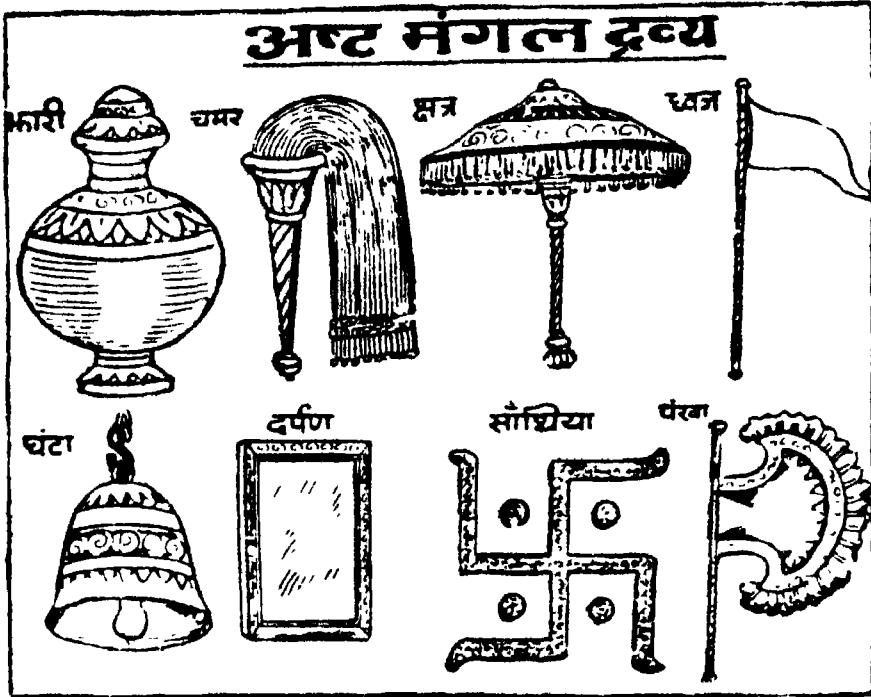 अष्ट मंगल द्रव्य
झारी चमर क्षत्र ध्वज
घंटा दर्पण साँथिया पंखा